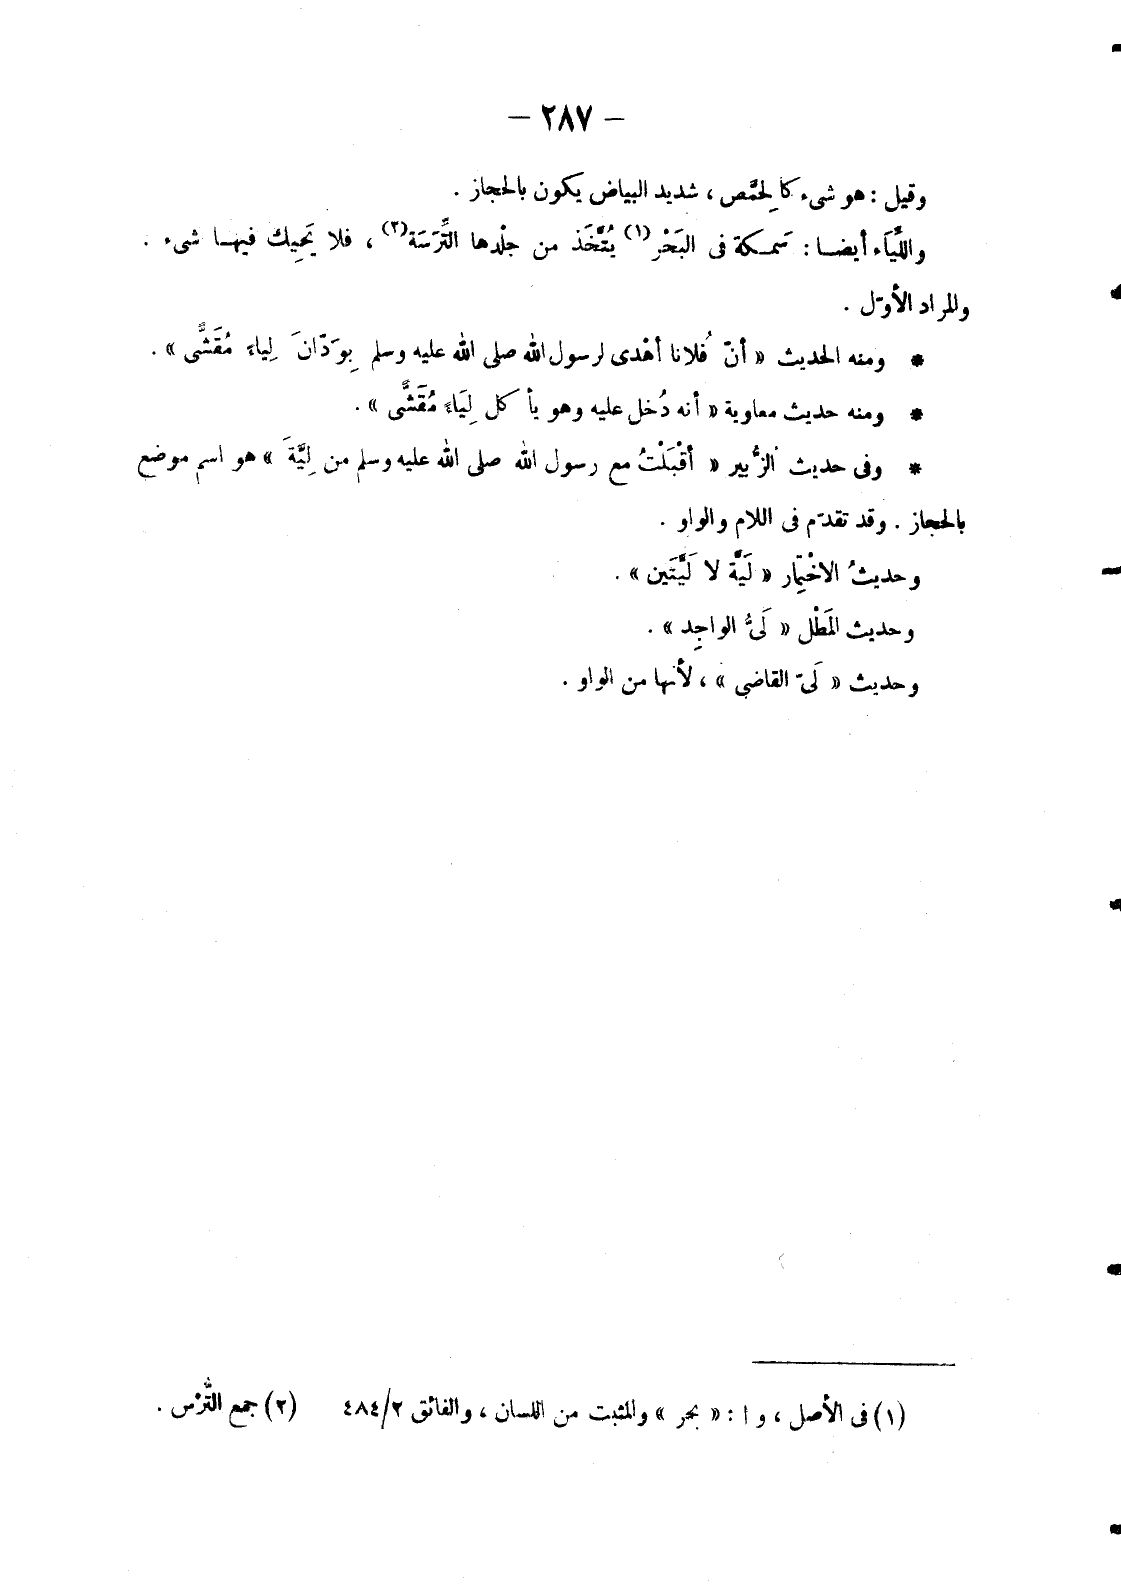 — ٢٨٧ —
وقيل : هو شىء كالِحمَّص ، شديد البياض يكون بالحجاز .
واللِّيَاء أيضا : سَمكة فى البَحْر (١) يُتَّخَذ من جلْدها التِّرَسَة (٢) ، فلا يَحِيك فيها شىء .
والمراد الأوّل .
* ومنه الحديث « أنّ فُلانا أهْدى لرسول الله صلى الله عليه وسلم بِوَدّانَ لِياءً مُقَشًّى » .
* ومنه حديث معاوية « أنه دُخل عليه وهو يأكل لِيَاءً مُقَشًّى » .
* وفى حديث الزُّبير « أقْبَلْتُ مع رسول الله صلى الله عليه وسلم من لِيَّةَ » هو اسم موضع
بالحجاز . وقد تقدّم فى اللام والواو .
وحديثُ الاخْتِمار « لَيَّةً لا لَيَّتَين » .
وحديث المَطْل « لَىُّ الواجِد » .
وحديث « لَىّ القاضى » ، لأنها من الواو .
(١) فى الأصل ، و ا : « بحر » والمثبت من اللسان ، والفائق ٤٨٤/٢ (٢) جمع التُّرْس .